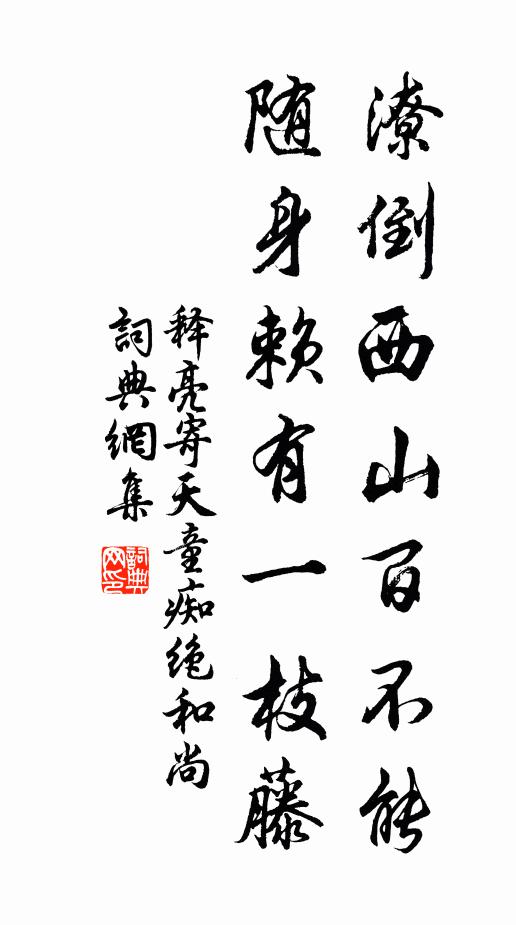 潦倒西山百不能
随身赖有一枝藤
释亮寄天童痴绝和尚
詞典網集
詞典网印